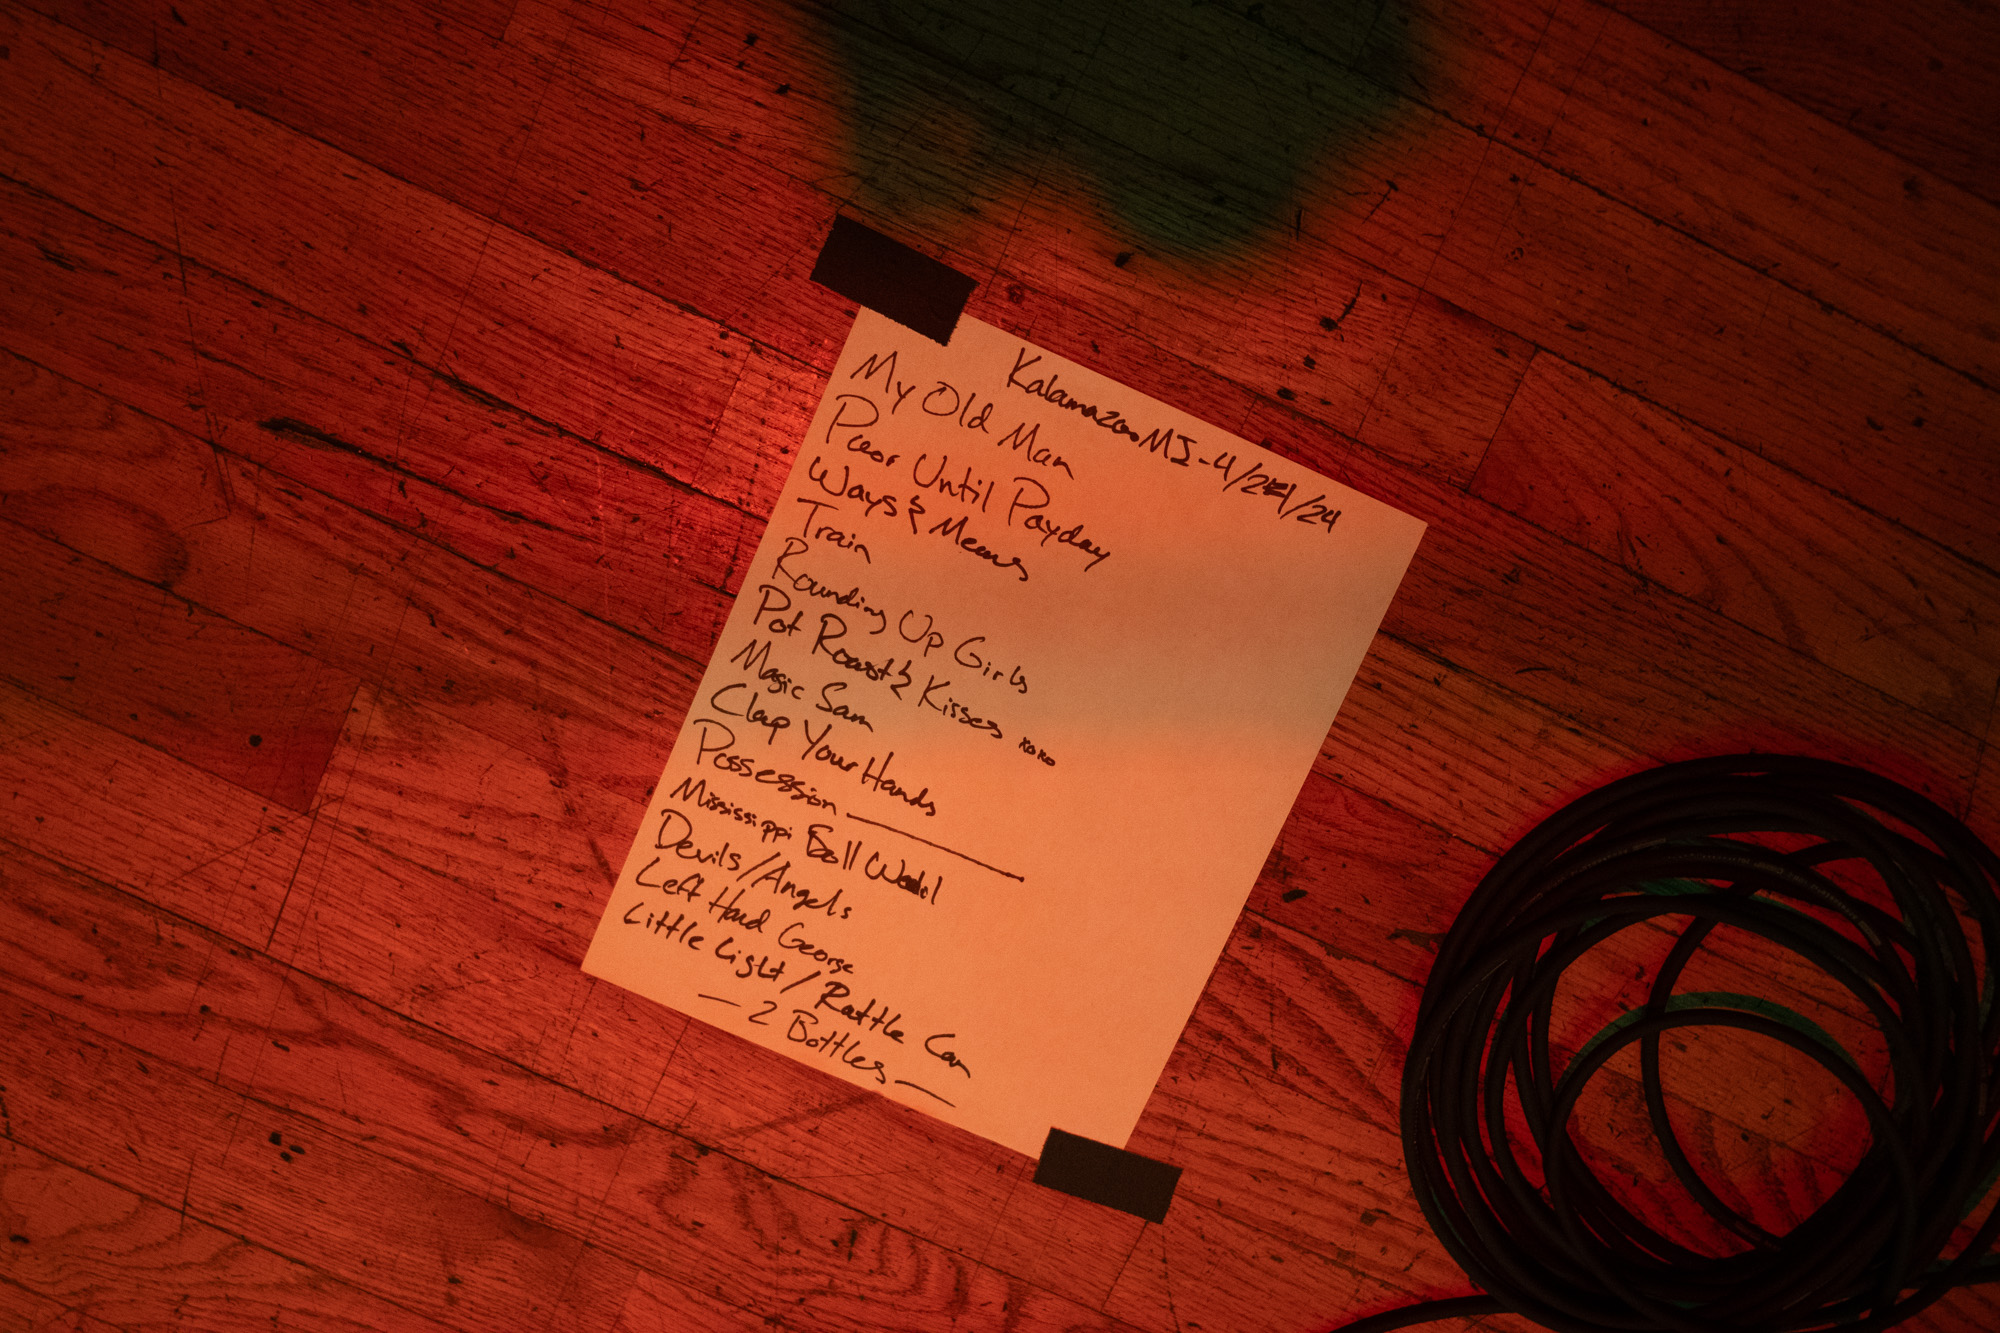 Kalamazoo MI - 4/24/24
My Old Man
Poor Until Payday
Ways & Means
Train
Rounding Up Girls
Pot Roast & Kisses xoxo
Magic Sam
Clap Your Hands
Possession
Mississippi Boll Weevil
Devils/Angels
Left Hand George
Little Light / Rattle Can
— 2 Bottles —